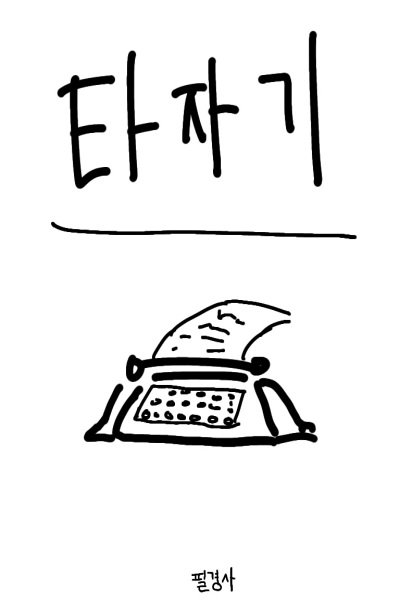 타자기
필경사